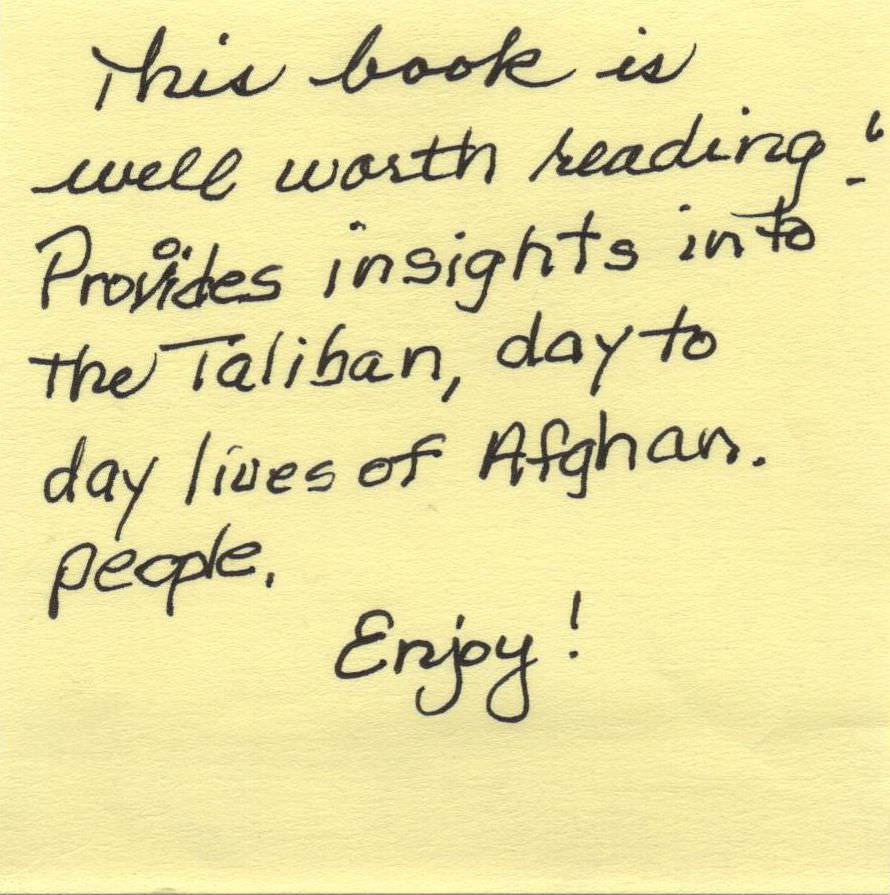 This book is
well worth reading!
Provides insights into
the Taliban, day to
day lives of Afghan.
people.
Enjoy!